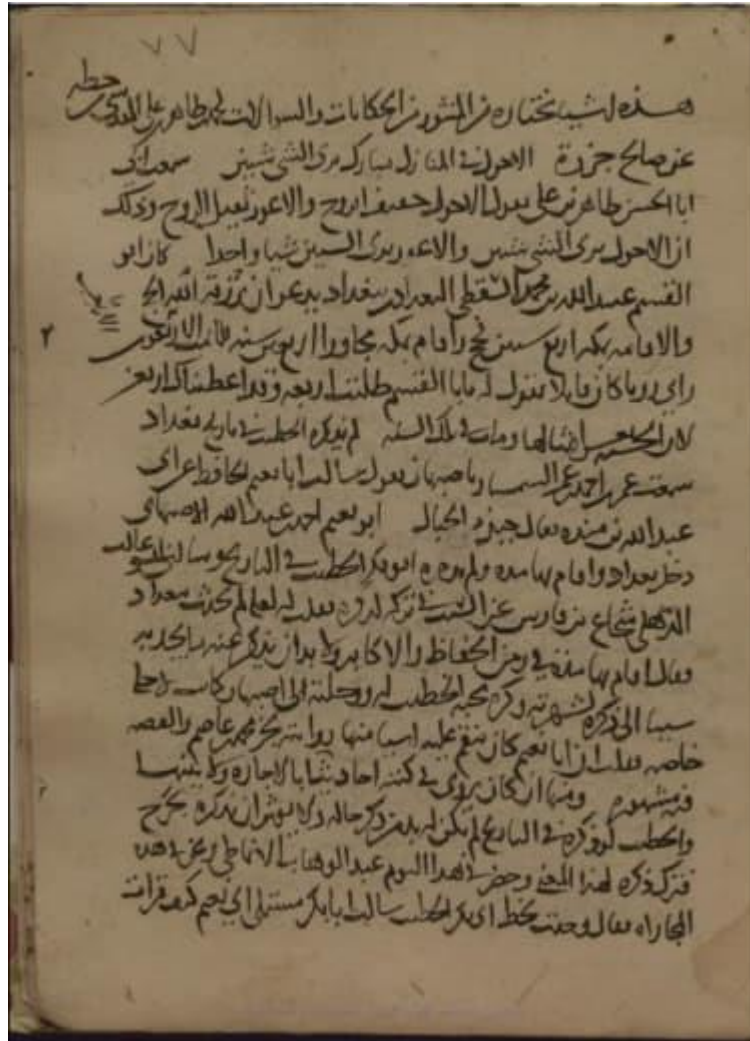 ٧٧
هذه اشيا مختاره من المنثور من الحكايات والسوالات لمحمد بن طاهر بن علي المقدسي خطه
عن صالح جزرة الاحول في المنازل مبارك يرى الشي شيين سمعت ابي
ابا الحسن طاهر بن علي يقول الاحول خفيف الروح والاعور ثقيل الروح وذلك
ان الاحول يرى الشي شيين والاعور يرى الشيين شيا واحدا كان ابو
القسم عبد الله بن محمد السقطي البغدادي ببغداد يدعو ان يرزقه الله الحج
والاقامه بمكه اربع سنين فحج واقام بمكه مجاورا اربعين سنه
راى رويا كان قايلا يقول له يابا القسم طلبت اربعه وقد اعطيناك اربعين
لان الحسنه بعشر امثالها ومات في تلك السنه لم يذكره الخطيب في تاريخ بغداد
سمعت عمر بن احمد بن عمر السمسار باصبهان يقول سالت ابا نعيم الحافظ عن ابي
عبد الله بن منده فقال جبل من الجبال ابو نعيم احمد بن عبد الله الاصبهاني
دخل بغداد واقام بها مده ولم يذكره ابو بكر الخطيب في التاريخ وسالت ابو غالب
الذهلي شجاع بن فارس عن السبب في تركه لذكره وقلت له لعله لم يحدث ببغداد
فقال اقام بها مده في زمن الحفاظ والاكابر ولابد ان يذكر عنه
سببا الى ذكره لشهرته وكثرة محبه الخطيب له ورحلته الى اصبهان كانت لاجله
خاصه فقلت ان ابا نعيم كان ينقم عليه اشيا منها روايته بجزء محمد بن عاصم والقصه
فيه مشهوره ومنها انه كان يروي في كتبه احاديثا بالاجازه ولا يبينها
والخطيب لو ذكره في التاريخ لم يكن له بد من ذكر حاله ولا يوثر ان يذكره بجرح
فترك ذكره لهذا المعنى وحضر في هذا اليوم عبد الوهاب الانماطي
فقال وجدت بخط ابي بكر الخطيب سالت ابا بكر مستملي ابي نعيم كيف قرات